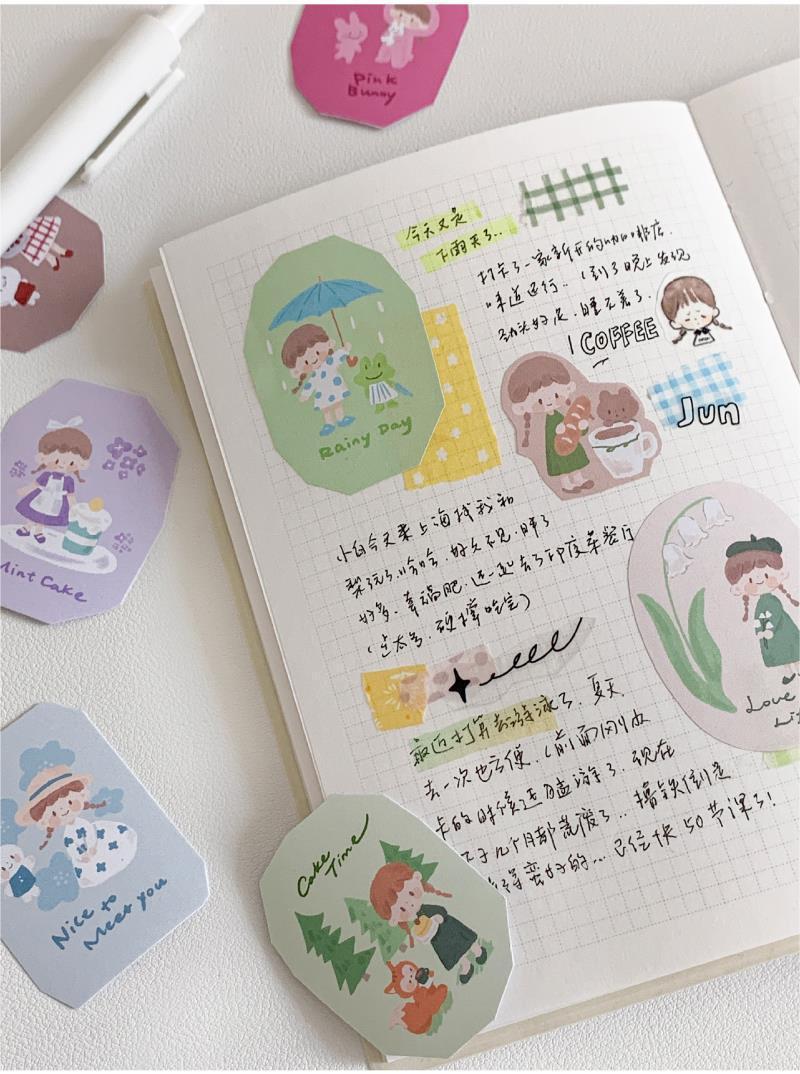 Pink
Bunny
今天又是
下雨天了..
打卡了一家新开的咖啡店.
味道还行..(到了晚上发现
劲头好足.睡不着了.
COFFEE
Jun
Rainy Day
小白今天来上海找我和
梨玩了.哈哈.好久不见.胖了
好多.幸福肥.还一起去了印度菜餐厅
(上太多.硬撑吃完)
最近打算去游泳了.夏天
去一次也方便.(前面刚办
卡的时候还猛游了.现在
几个月都荒废了..撸铁倒是
蛮好的...已经快50节课了!
Mint Cake
Love
Nice to
Meet you
Cake
Time